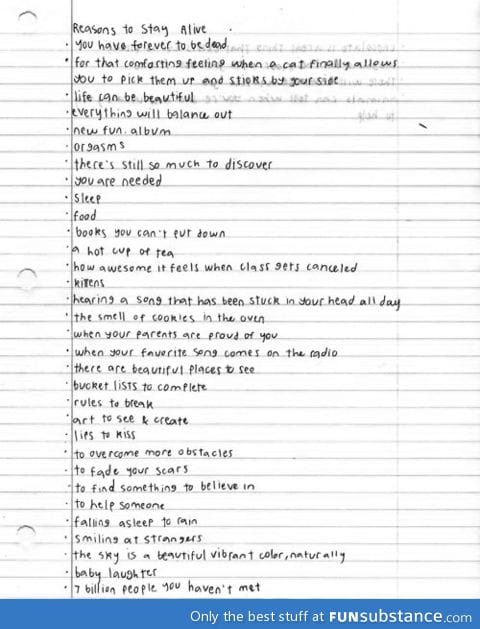 Reasons to Stay Alive
· you have forever to be dead
· for that comforting feeling when a cat finally allows
you to pick them up and sticks by your side
· life can be beautiful
· everything will balance out
· new fun. album
· orgasms
· there's still so much to discover
· you are needed
· sleep
· food
· books you can't put down
· a hot cup of tea
· how awesome it feels when class gets canceled
· kittens
· hearing a song that has been stuck in your head all day
· the smell of cookies in the oven
· when your parents are proud of you
· when your favorite song comes on the radio
· there are beautiful places to see
· bucket lists to complete
· rules to break
· art to see & create
· lips to kiss
· to overcome more obstacles
· to fade your scars
· to find something to believe in
· to help someone
· falling asleep to rain
· smiling at strangers
· the sky is a beautiful vibrant color, naturally
· baby laughter
· 7 billion people you haven't met
Only the best stuff at FUNsubstance.com!